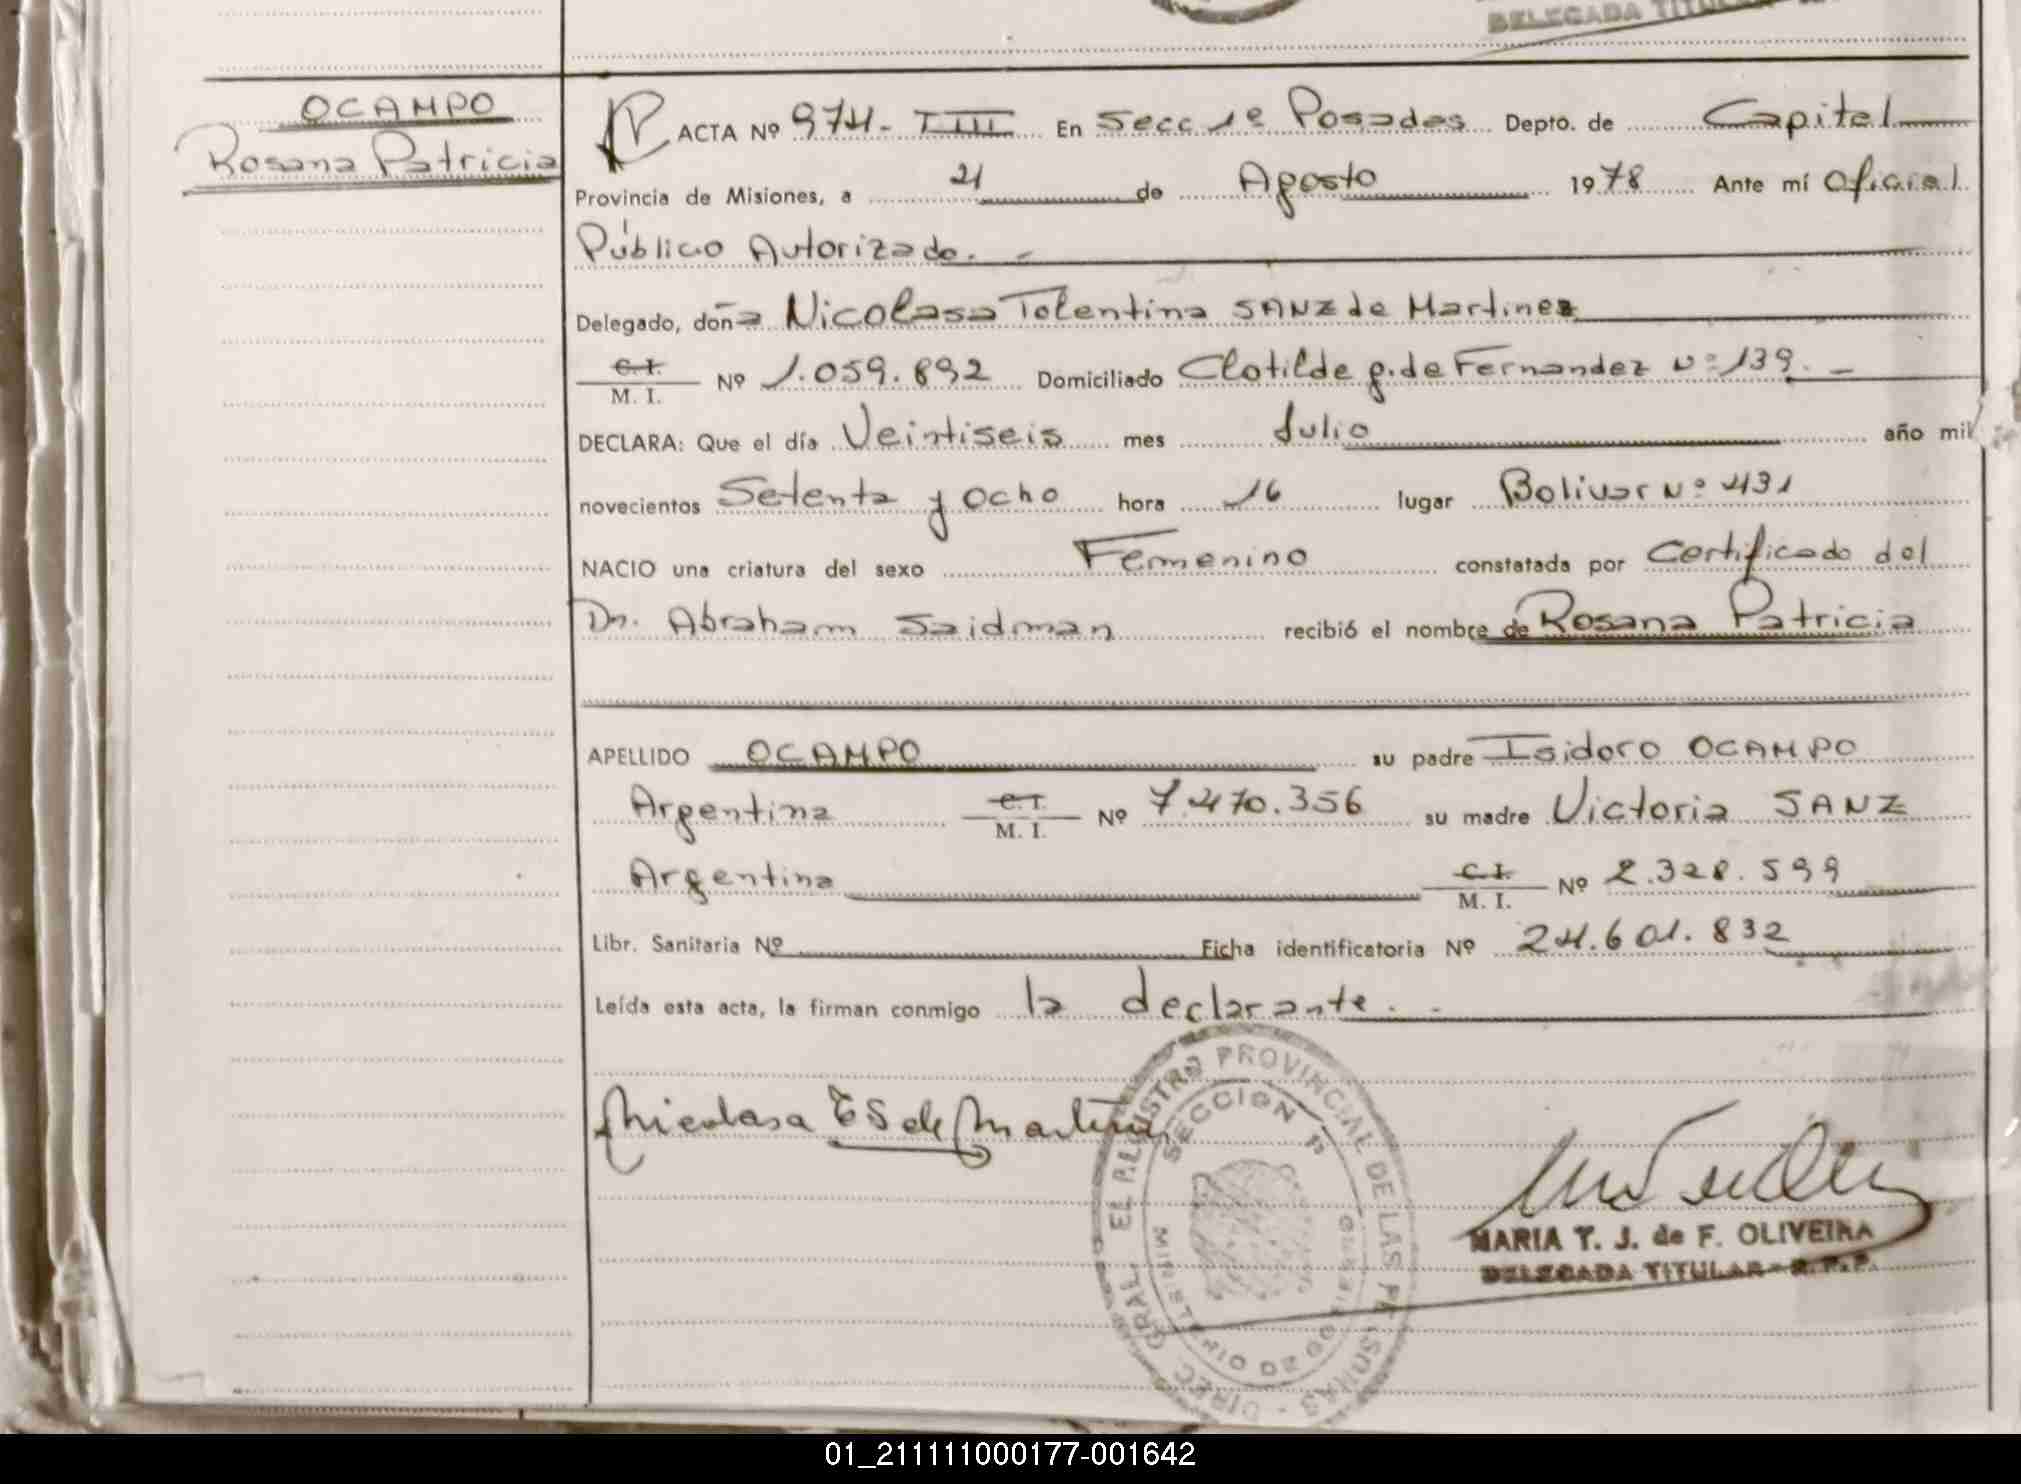 DELEGADA TITULAR
OCAMPO
Rosana Patricia
ACTA Nº 974- TIII En Secc 1e Posadas Depto. de Capital
Provincia de Misiones, a 21 de Agosto 1978 Ante mí Oficial
Público Autorizado. -
Delegado, doña Nicolasa Tolentina SANZ de Martinez
C.I. M. I. Nº 1.059.892 Domiciliado Clotilde g. de Fernandez Nº 139. -
DECLARA: Que el día Veintiseis mes Julio año mil
novecientos Setenta y Ocho hora 16 lugar Bolivar Nº 431
NACIO una criatura del sexo Femenino constatada por Certificado del
Dr. Abraham Saidman recibió el nombre de Rosana Patricia
APELLIDO OCAMPO su padre Isidoro OCAMPO
Argentina C.I. M. I. Nº 7.470.356 su madre Victoria SANZ
Argentina C.I. M. I. Nº 2.328.599
Libr. Sanitaria Nº Ficha identificatoria Nº 24.601.832
Leída esta acta, la firman conmigo la declarante. -
Nicolasa T S de Martinez
DIREC. GRAL. REGISTRO PROVINCIAL DE LAS PERSONAS
SECCION 1ª
MARIA T. J. de F. OLIVEIRA
DELEGADA TITULAR - R.P.P.
01_211111000177-001642